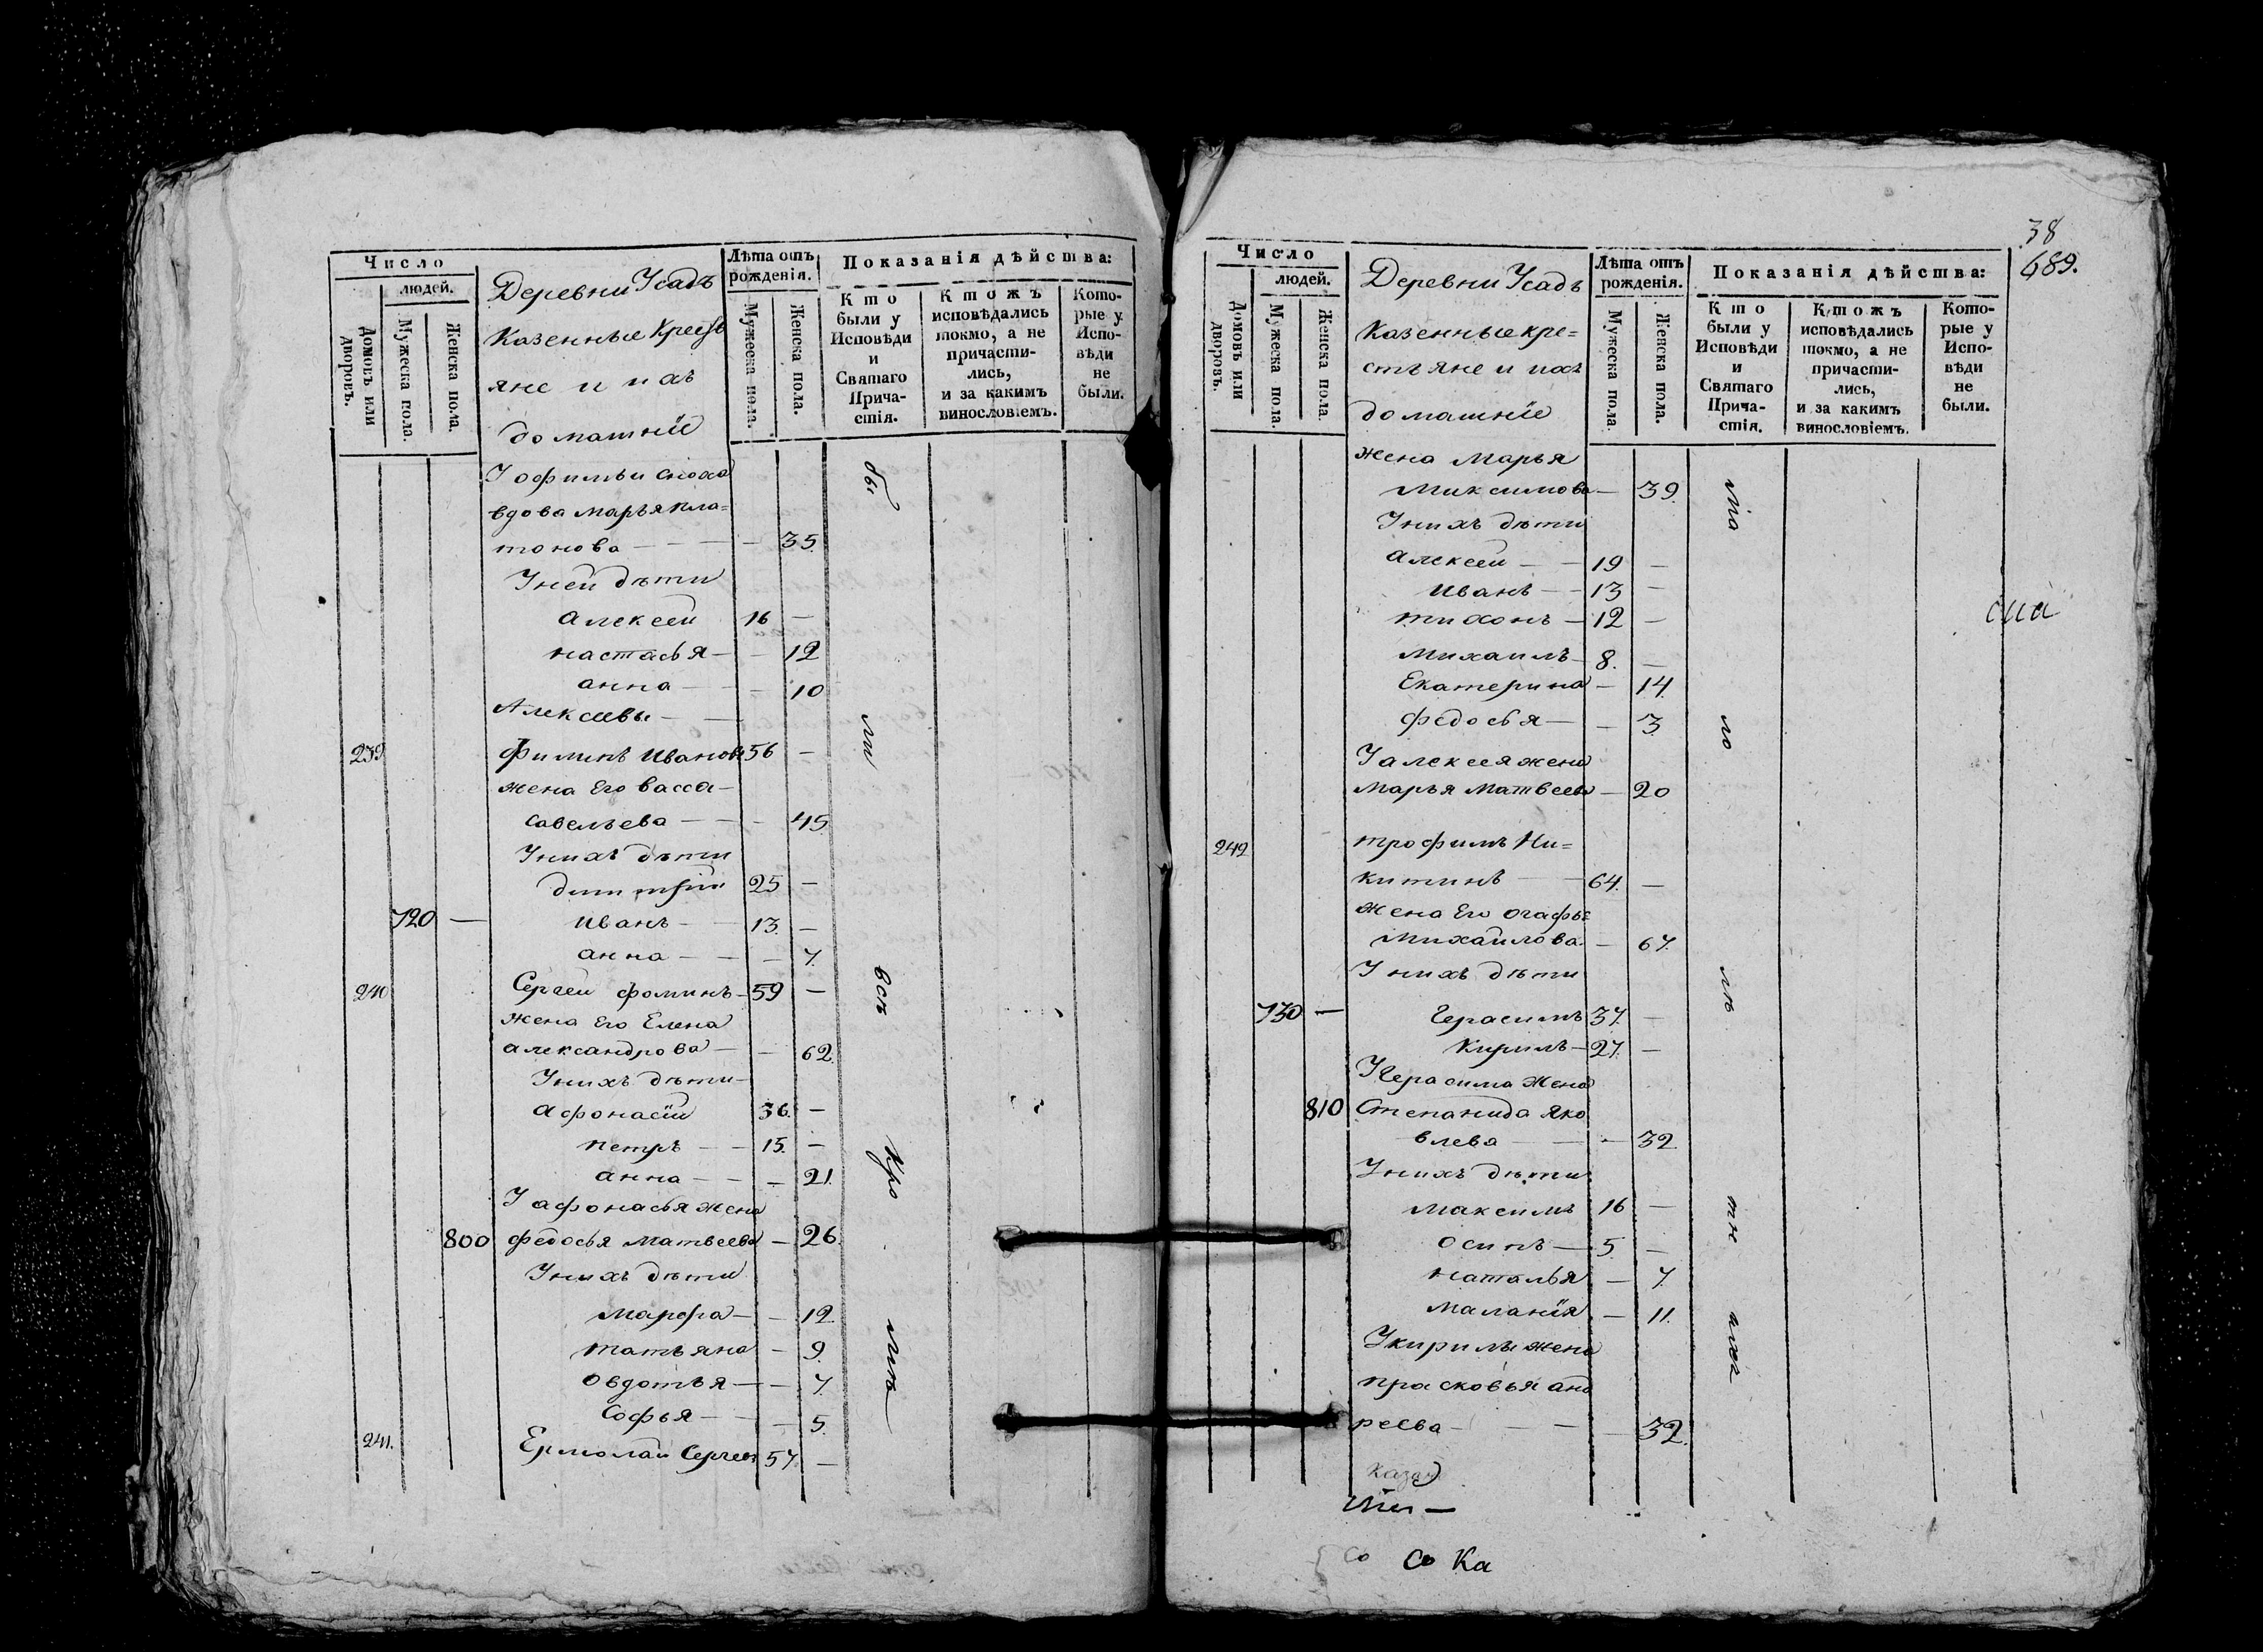 Число
людей.
Домовъ или дворовъ.
Мужеска пола.
Женска пола.
Деревни Усадъ
Казенные Кресть
яне и ихъ
домашніе
Лѣта отъ рожденія.
Мужеска пола.
Женска пола.
Показанія дѣйства:
Кто были у Исповѣди и Святаго Причастія.
Ктожъ исповѣдались токмо, а не причастились, и за какимъ винословіемъ.
Которые у Исповѣди не были.
У офимьи сноха
вдова марья пла=
тонова — — — 35.
У ней дѣти
алексей 16 —
настасья — — 12
анна — — 10
Алексеевы — —
239 филипъ Ивановъ 56 —
жена Его васса —
савельева — — — 45
У нихъ дѣти
димитрій 25 —
720 — Иванъ — 13. —
анна — — — 7.
240 Сергей фоминъ — 59 —
жена Его Елена
александрова — — 62.
У нихъ дѣти —
афонасій 36. —
петръ — — 15. —
анна — — — 21.
У афонасья жена
800 федосья матвеева — 26.
У нихъ дѣти
марфа — — 12.
татьяна — 9.
овдотья — — 7.
Софья — — 5.
241. Ермолай Сергеевъ 57. —
бы
ли
всѣ
Кро
мѣ
38
689.
Число
людей.
Домовъ или дворовъ.
Мужеска пола.
Женска пола.
Деревни Усадъ
Казенные кре=
стьяне и ихъ
домашніе
Лѣта отъ рожденія.
Мужеска пола.
Женска пола.
Показанія дѣйства:
Кто были у Исповѣди и Святаго Причастія.
Ктожъ исповѣдались токмо, а не причастились, и за какимъ винословіемъ.
Которые у Исповѣди не были.
жена марья
Максимова — 39.
У нихъ дѣти
алексей — — 19 —
Иванъ — — 13 —
тихонъ — 12 —
михаилъ — 8. —
Екатерина — 14.
федосья — — 3.
У алексея жена
марья матвеева — 20
242 трофимъ Ни=
китинъ — — 64. —
жена Его огафья
михайлова. — 67.
У нихъ дѣти
730 — Герасимъ 37. —
Кирилъ — 27. —
У Герасима жена
810 Степанида Яко
влева — — — 32
У нихъ дѣти
максимъ 16 —
осипъ — 5. —
наталья — 7.
маланія — 11.
У кирилы жена
прасковья анд
реева — — — 32.
ма
ло
лѣ
тн
ихъ
Казан
Со Со Ка